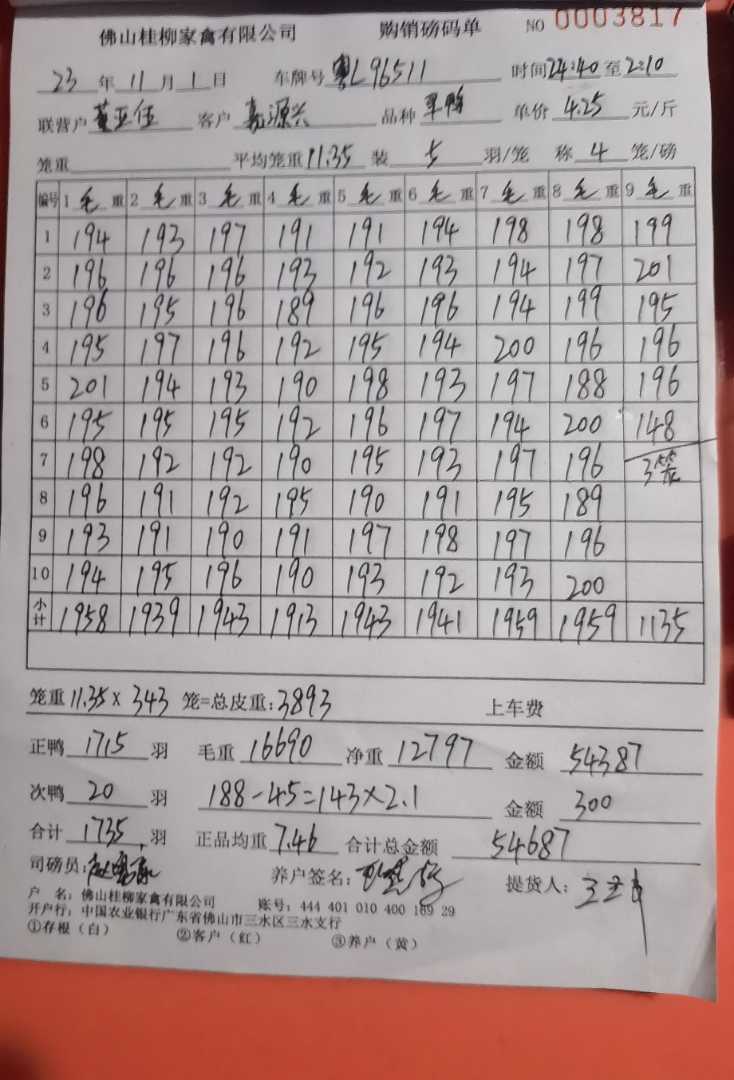 佛山桂柳家禽有限公司 购销磅码单 NO 0003817
23年11月1日 车牌号粤L96511 时间24:40至2:10
联营户董亚伍 客户嘉源兴 品种 单价4.25元/斤
笼重 平均笼重11.35 装5羽/笼 称4笼/磅
编号 1毛重 2毛重 3毛重 4毛重 5毛重 6毛重 7毛重 8毛重 9毛重
1 194 193 197 191 191 194 198 198 199
2 196 196 196 193 192 193 194 197 201
3 196 195 196 189 196 196 194 199 195
4 195 197 196 192 195 194 200 196 196
5 201 194 193 190 198 193 197 188 196
6 195 195 195 192 196 197 194 200 148
7 198 192 192 190 195 193 197 196 3笼
8 196 191 192 195 190 191 195 189
9 193 191 190 191 197 198 197 196
10 194 195 196 190 193 192 193 200
小计 1958 1939 1943 1913 1943 1941 1959 1959 1135
笼重11.35×343笼=总皮重:3893 上车费
正鸭1715羽 毛重16690 净重12797 金额54387
次鸭20羽 188-45=143×2.1 金额300
合计1735羽 正品均重7.46 合计总金额54687
司磅员: 养户签名: 提货人:
户 名:佛山桂柳家禽有限公司 账号:444 401 010 400 169 29
开户行:中国农业银行广东省佛山市三水区三水支行
①存根(白) ②客户(红) ③养户(黄)